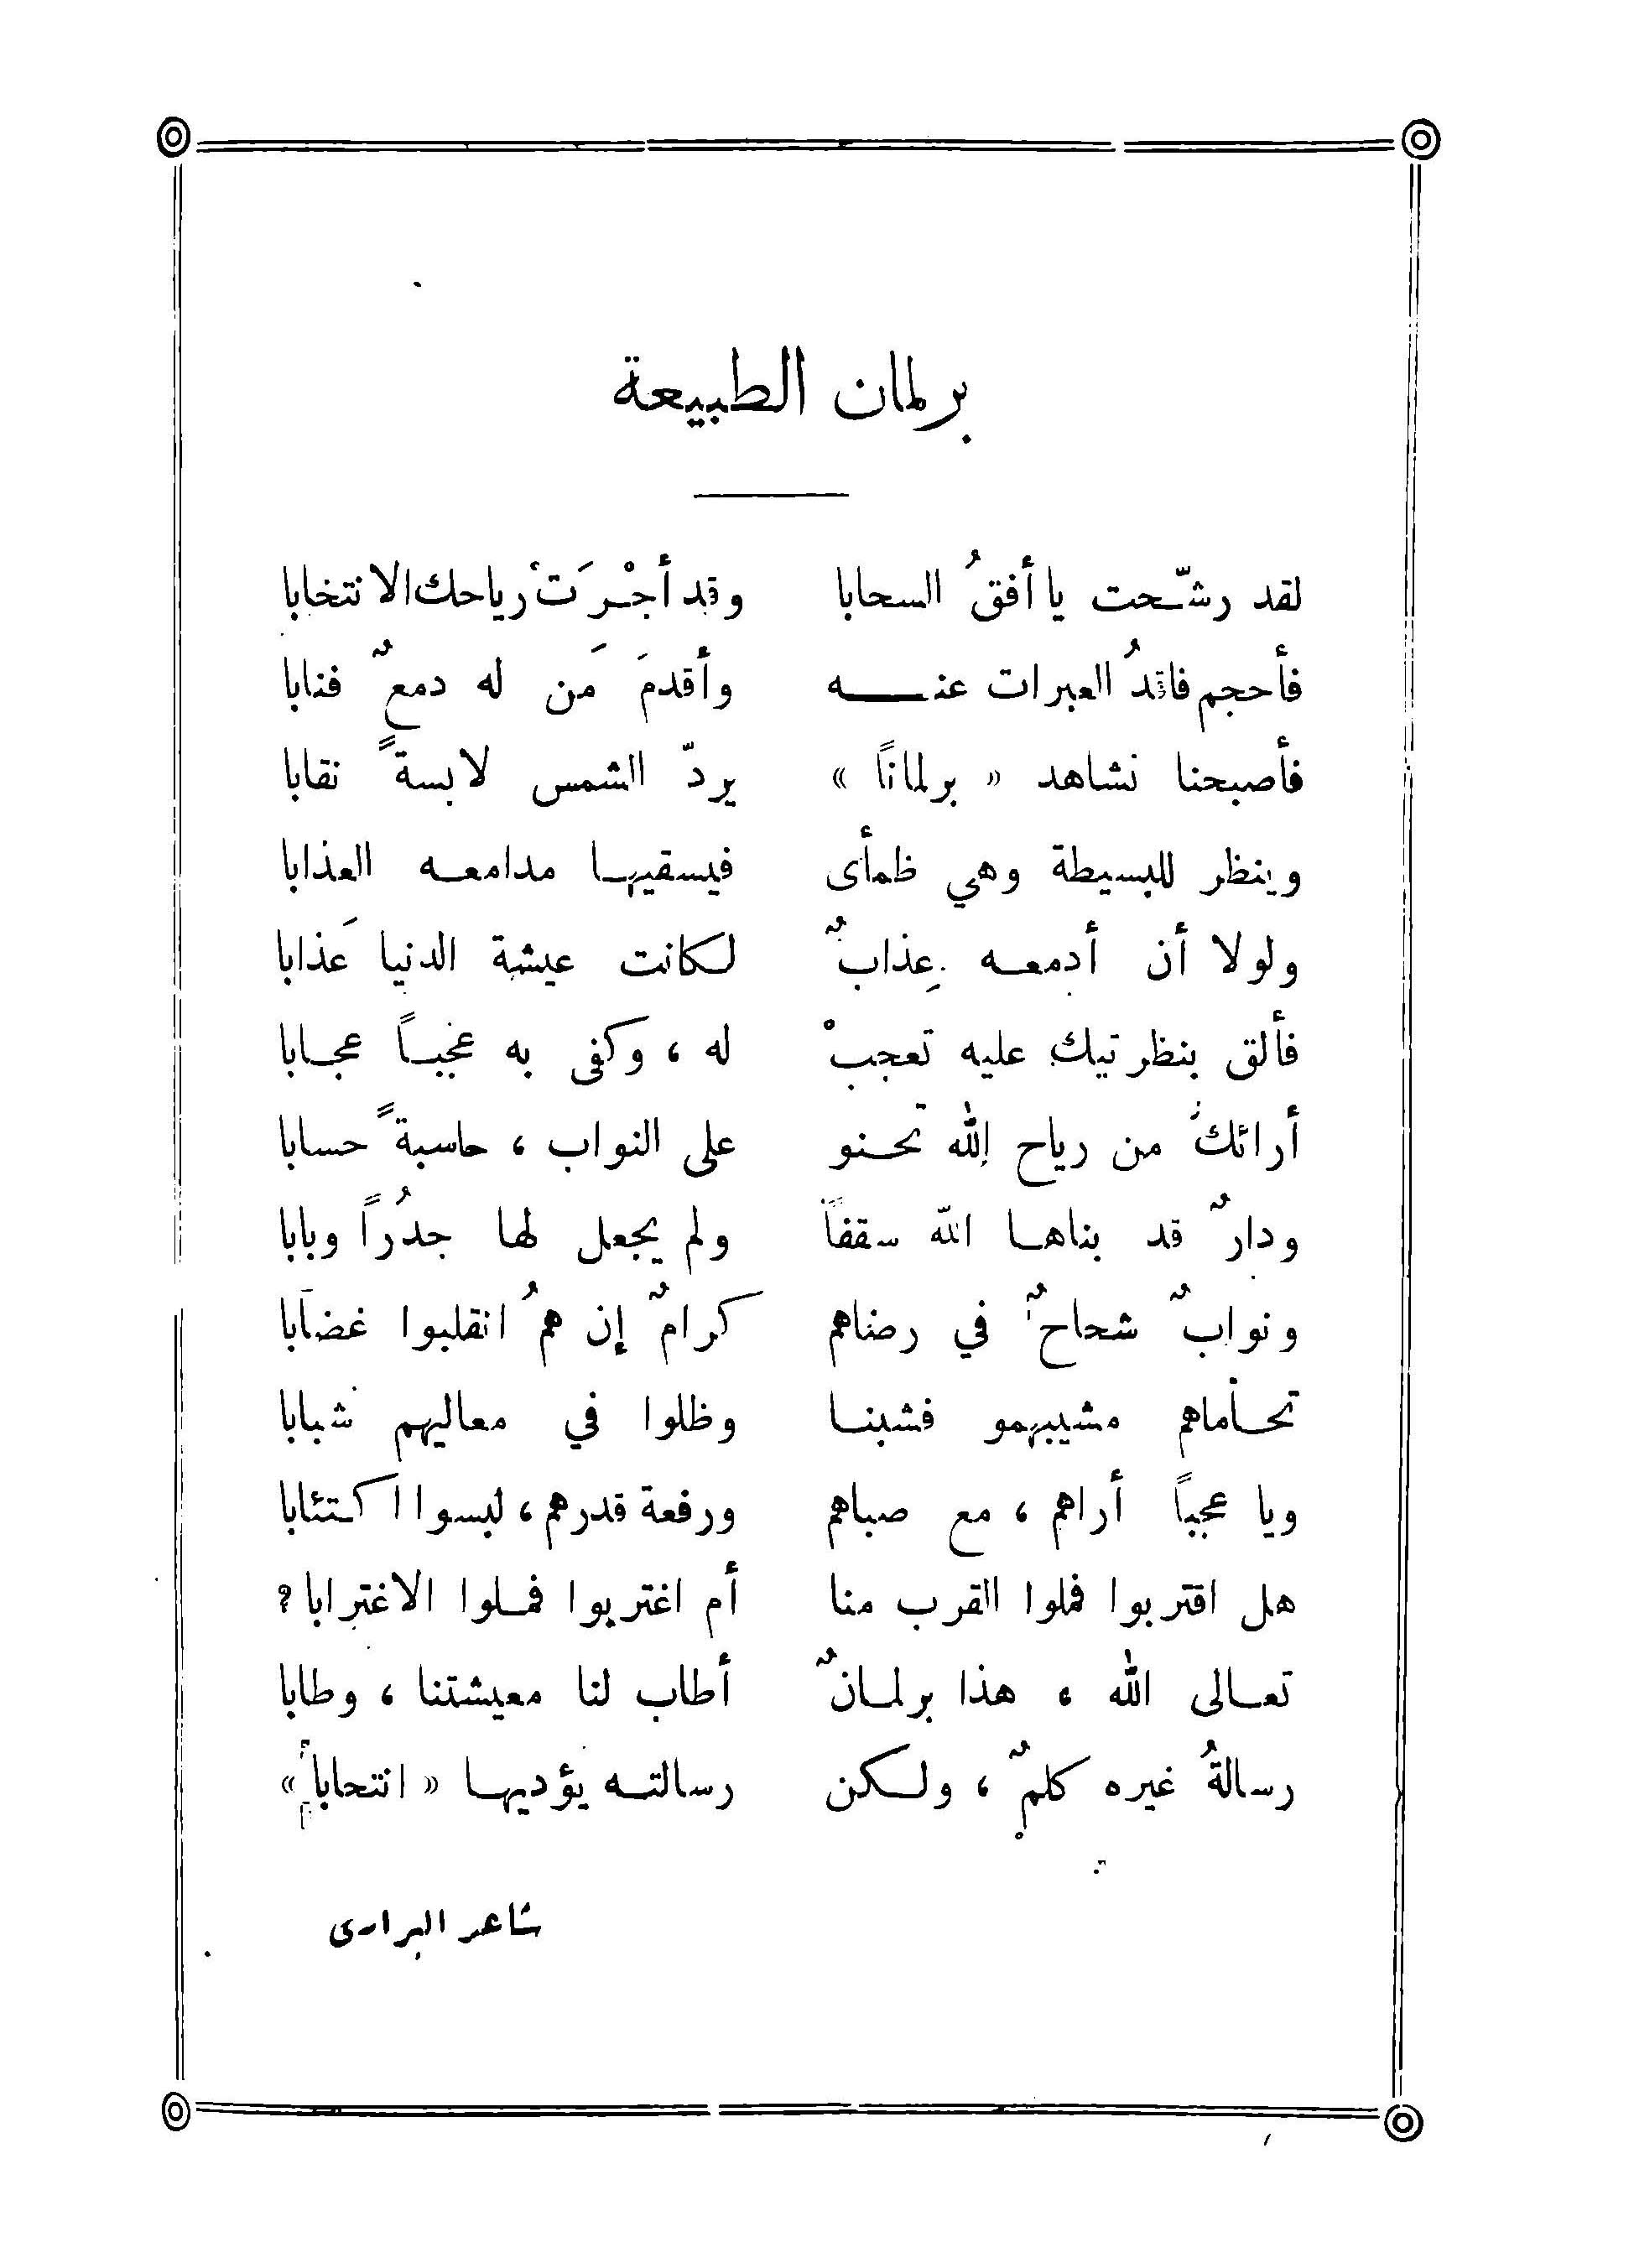 برلمان الطبيعة
لقد رشّحت يا أفقُ السحابا وقد أجْرَتْ رياحك الانتخابا
فأحجم فاقدُ العبرات عنه وأقدمَ مَن له دمعٌ فنابا
فأصبحنا نشاهد « برلماناً » يردّ الشمس لابسةً نقابا
وينظر للبسيطة وهي ظمأى فيسقيها مدامعه العذابا
ولولا أن أدمعه عِذابٌ لكانت عيشة الدنيا عَذابا
فألق بنظرتيك عليه تعجبْ له ، وكفى به عجباً عجابا
أرائكُ من رياح الله تحنو على النواب ، حاسبةً حسابا
ودارٌ قد بناها الله سقفاً ولم يجعل لها جدُراً وبابا
ونوابٌ شحاحٌ في رضاهم كرامٌ إن همُ انقلبوا غضابا
تحاماهم مشيبهمو فشبنا وظلوا في معاليهم شبابا
ويا عجباً أراهم ، مع صباهم ورفعة قدرهم ، لبسوا اكتئابا
هل اقتربوا فملوا القرب منا أم اغتربوا فملوا الاغترابا ?
تعالى الله ، هذا برلمانٌ أطاب لنا معيشتنا ، وطابا
رسالةُ غيره كلمٌ ، ولكن رسالته يؤديها « انتحابا »
شاعر البراري